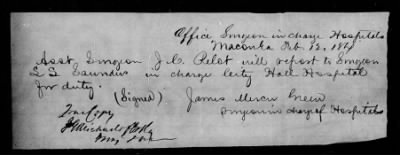 Office Surgeon in charge Hospitals
Macon Ga Feb 12, 186
Asst. Surgeon J. C. Pelot will report to Surgeon
S. S. Saunders in charge City Hall Hospital
for duty.
(Signed) James Mercer Green
Surgeon in charge of Hospitals
True Copy